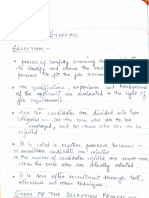 STAFFING
SELECTION :-
• process of carefully screening the
to identify and choose the most
person to fill the job vacancies
• the qualifications, experience and background
of the applicants are evaluated in the light of
job requirements.
• Here the candidates are divided into two
categories as (a) the ones who are to be
employed, and (b) those who are not to
be.
• It is called a negative process because
the number of candidates rejected are more
than the ones who are finally selected
• It is done after recruitment through test,
interviews and other techniques.
STEPS OF THE SELECTION PROCESS